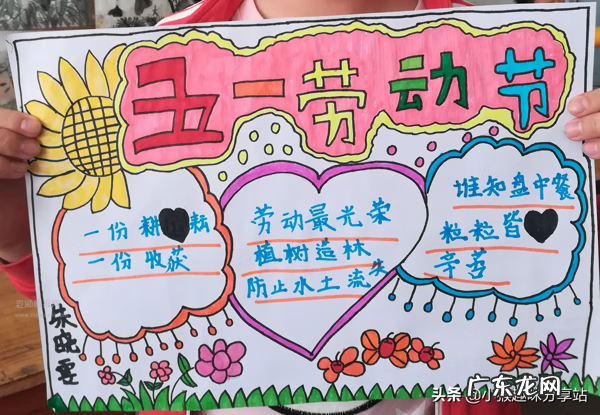 五一劳动节
一份耕耘
一份收获
劳动最光荣
植树造林
防止水土流失
谁知盘中餐
粒粒皆
辛苦
头条 @小猴趣味分享站
广东龙网